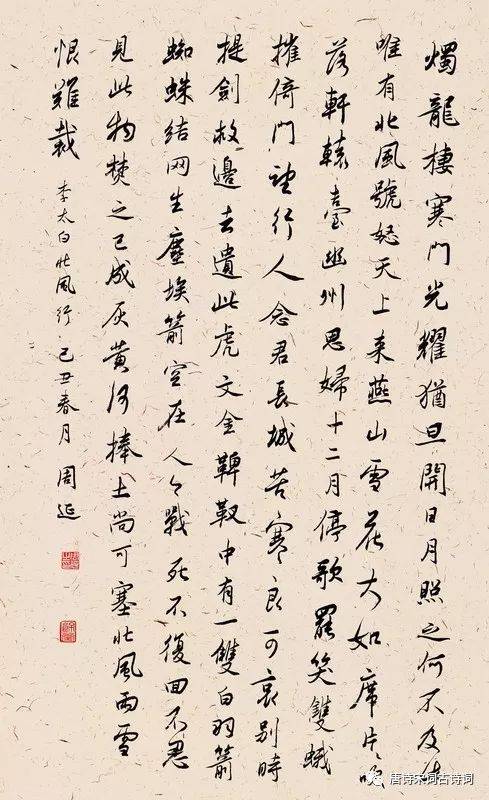 燭龍棲寒門光耀猶旦開日月照之何不及此
唯有北風號怒天上来燕山雪花大如席片々吹
落軒轅臺幽州思婦十二月停歌罷笑雙蛾
摧倚門望行人念君長城苦寒良可哀別時
提劍救邊去遺此虎文金鞞靫中有一雙白羽箭
蜘蛛結网生塵埃箭空在人今戰死不復回不忍
見此物焚之已成灰黃河捧土尚可塞北風雨雪
恨難裁 李太白北風行 己丑春月 周延
唐诗宋词古诗词